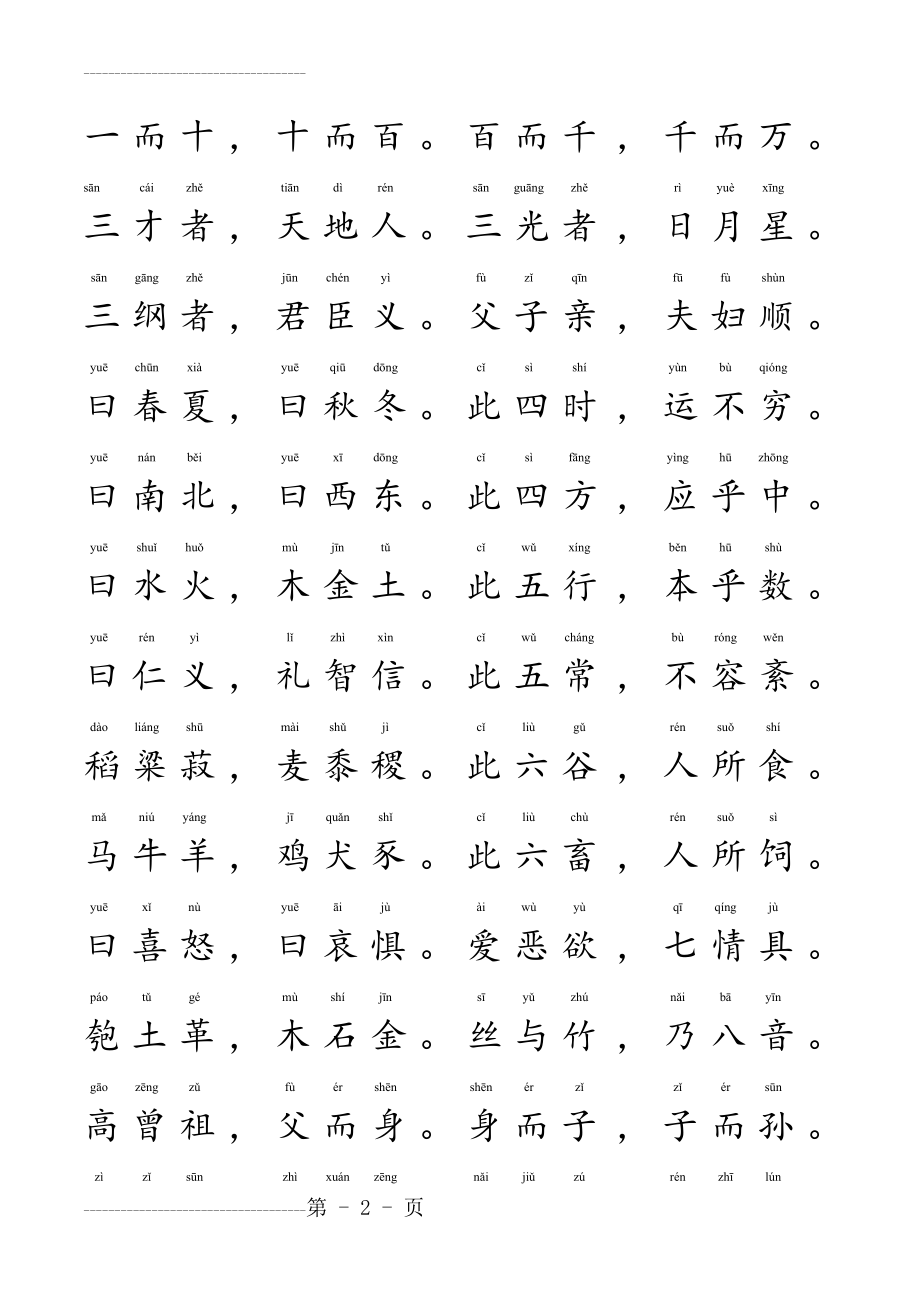 ------------------------------------
一而十，十而百。百而千，千而万。
sān cái zhě tiān dì rén sān guāng zhě rì yuè xīng
三才者，天地人。三光者，日月星。
sān gāng zhě jūn chén yì fù zǐ qīn fū fù shùn
三纲者，君臣义。父子亲，夫妇顺。
yuē chūn xià yuē qiū dōng cǐ sì shí yùn bù qióng
曰春夏，曰秋冬。此四时，运不穷。
yuē nán běi yuē xī dōng cǐ sì fāng yìng hū zhōng
曰南北，曰西东。此四方，应乎中。
yuē shuǐ huǒ mù jīn tǔ cǐ wǔ xíng běn hū shù
曰水火，木金土。此五行，本乎数。
yuē rén yì lǐ zhì xìn cǐ wǔ cháng bù róng wěn
曰仁义，礼智信。此五常，不容紊。
dào liáng shū mài shǔ jì cǐ liù gǔ rén suǒ shí
稻粱菽，麦黍稷。此六谷，人所食。
mǎ niú yáng jī quǎn shǐ cǐ liù chù rén suǒ sì
马牛羊，鸡犬豕。此六畜，人所饲。
yuē xǐ nù yuē āi jù ài wù yù qī qíng jù
曰喜怒，曰哀惧。爱恶欲，七情具。
páo tǔ gé mù shí jīn sī yǔ zhú nǎi bā yīn
匏土革，木石金。丝与竹，乃八音。
gāo zēng zǔ fù ér shēn shēn ér zǐ zǐ ér sūn
高曾祖，父而身。身而子，子而孙。
zì zǐ sūn zhì xuán zēng nǎi jiǔ zú rén zhī lún
------------------------------------第 - 2 - 页